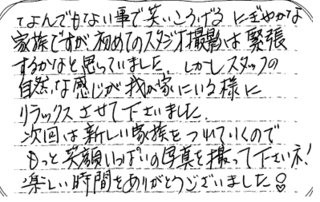 とんでもない事で笑いころげる にぎやかな
家族ですが初めてのスタジオ撮影は緊張
するかなと思っていました。しかしスタッフの
自然な感じが我が家にいる様に
リラックスさせて下さいました。
次回は新しい家族をつれていくので
もっと笑顔いっぱいの写真を撮って下さいネ!
楽しい時間をありがとうございました